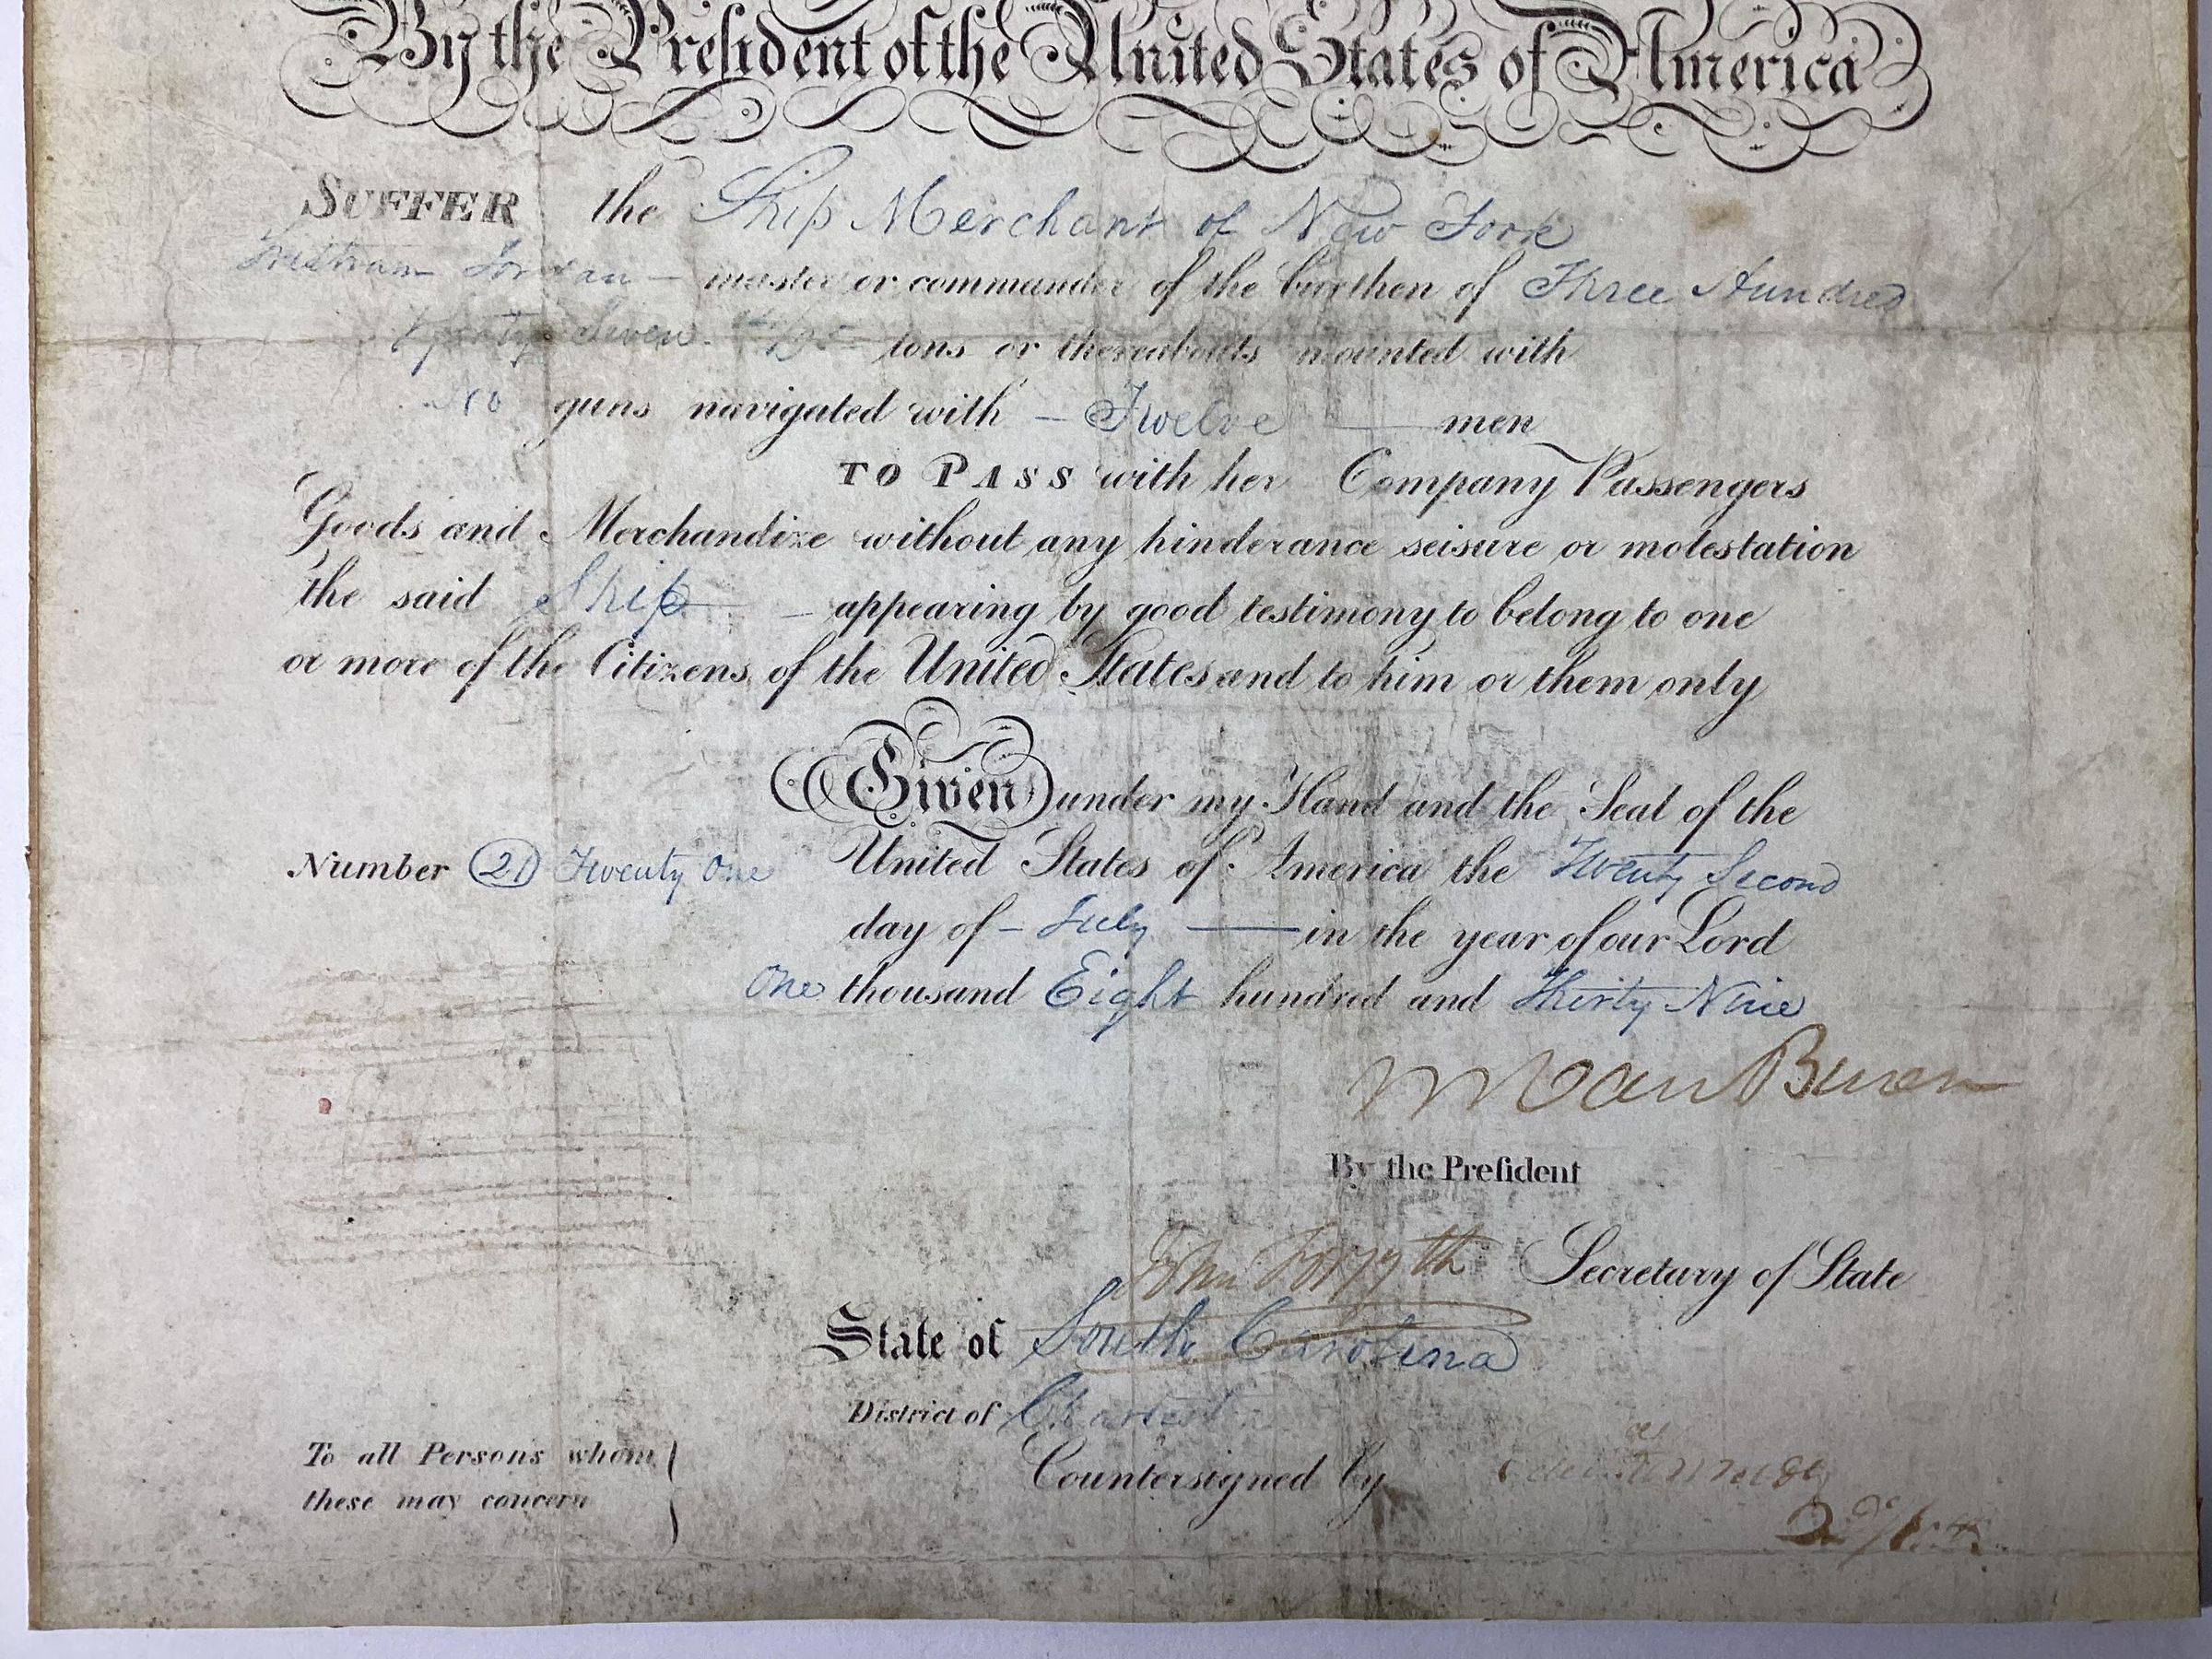 By the Preſident of the United States of America
SUFFER the Ship Merchant of New York
Tristram Jordan — master or commander of the burthen of Three Hundred
Seven tons or thereabouts mounted with
No guns navigated with — Twelve — men
TO PASS with her Company Passengers
Goods and Merchandize without any hinderance seisure or molestation
the said Ship — appearing by good testimony to belong to one
or more of the Citizens of the United States and to him or them only
Given under my Hand and the Seal of the
Number 21 Twenty One United States of America the Twenty Second
day of — July — in the year of our Lord
One thousand Eight hundred and Thirty Nine
M Van Buren
By the Preſident
John Forsyth Secretary of State
State of South Carolina
District of Charleston
To all Persons whom
these may concern
Countersigned by